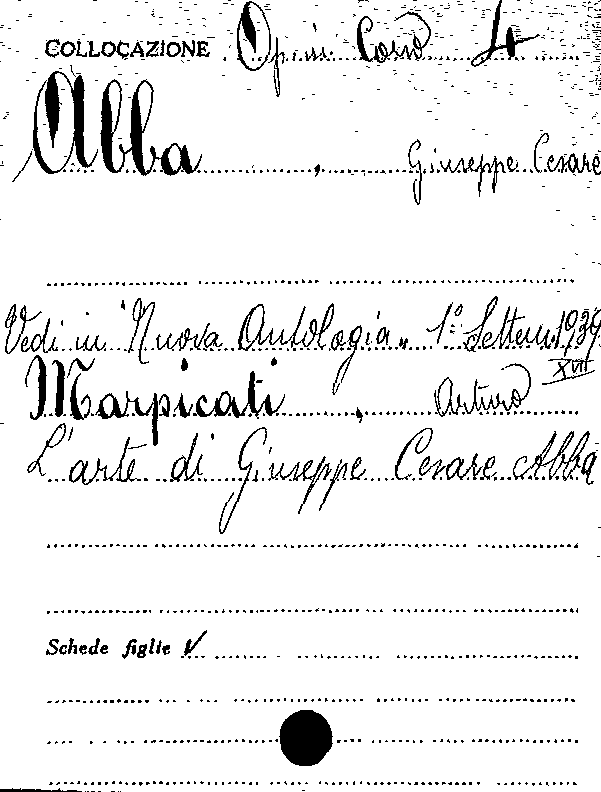 COLLOCAZIONE Opusc. Cons 4
Abba, Giuseppe Cesare
Vedi in "Nuova Antologia" 1° Settem. 1939
XVII
Marpicati, Arturo
L'arte di Giuseppe Cesare Abba
Schede figlie ✓